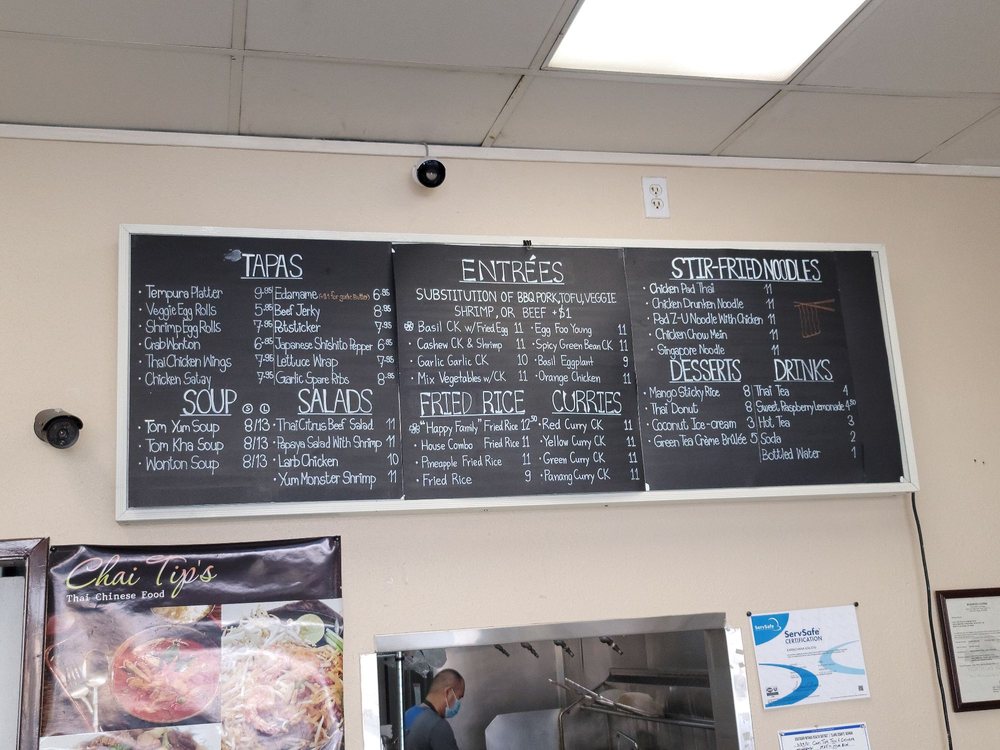 TAPAS
· Tempura Platter 9.95
· Veggie Egg Rolls 5.95
· Shrimp Egg Rolls 7.95
· Crab Wonton 6.95
· Thai Chicken Wings 7.95
· Chicken Satay 7.95
Edamame (+$1 for garlic Butter) 6.95
Beef Jerky 8.95
Potsticker 7.95
Japanese Shishito Pepper 6.95
Lettuce Wrap 7.95
Garlic Spare Ribs 8.95
SOUP S L
· Tom Yum Soup 8/13
· Tom Kha Soup 8/13
· Wonton Soup 8/13
SALADS
· Thai Citrus Beef Salad 11
· Papaya Salad With Shrimp 11
· Larb Chicken 10
· Yum Monster Shrimp 11
ENTRÉES
SUBSTITUTION OF BBQ PORK, TOFU, VEGGIE
SHRIMP, OR BEEF +$1
Basil CK w/Fried Egg 11
· Cashew CK & Shrimp 11
· Garlic Garlic CK 10
· Mix Vegetables w/CK 11
· Egg Foo Young 11
· Spicy Green Bean CK 11
· Basil Eggplant 9
· Orange Chicken 11
FRIED RICE
"Happy Family" Fried Rice 12.50
· House Combo Fried Rice 11
· Pineapple Fried Rice 11
· Fried Rice 9
CURRIES
· Red Curry CK 11
· Yellow Curry CK 11
· Green Curry CK 11
· Panang Curry CK 11
STIR-FRIED NOODLES
· Chicken Pad Thai 11
· Chicken Drunken Noodle 11
· Pad Z-U Noodle With Chicken 11
· Chicken Chow Mein 11
· Singapore Noodle 11
DESSERTS
· Mango Sticky Rice 8
· Thai Donut 8
· Coconut Ice-cream 3
· Green Tea Crème Brûlée 5
DRINKS
Thai Tea 4
Sweet Raspberry Lemonade 4.50
Hot Tea 3
Soda 2
Bottled Water 1
Chai Tip's
Thai Chinese Food
ServSafe
ServSafe
CERTIFICATION